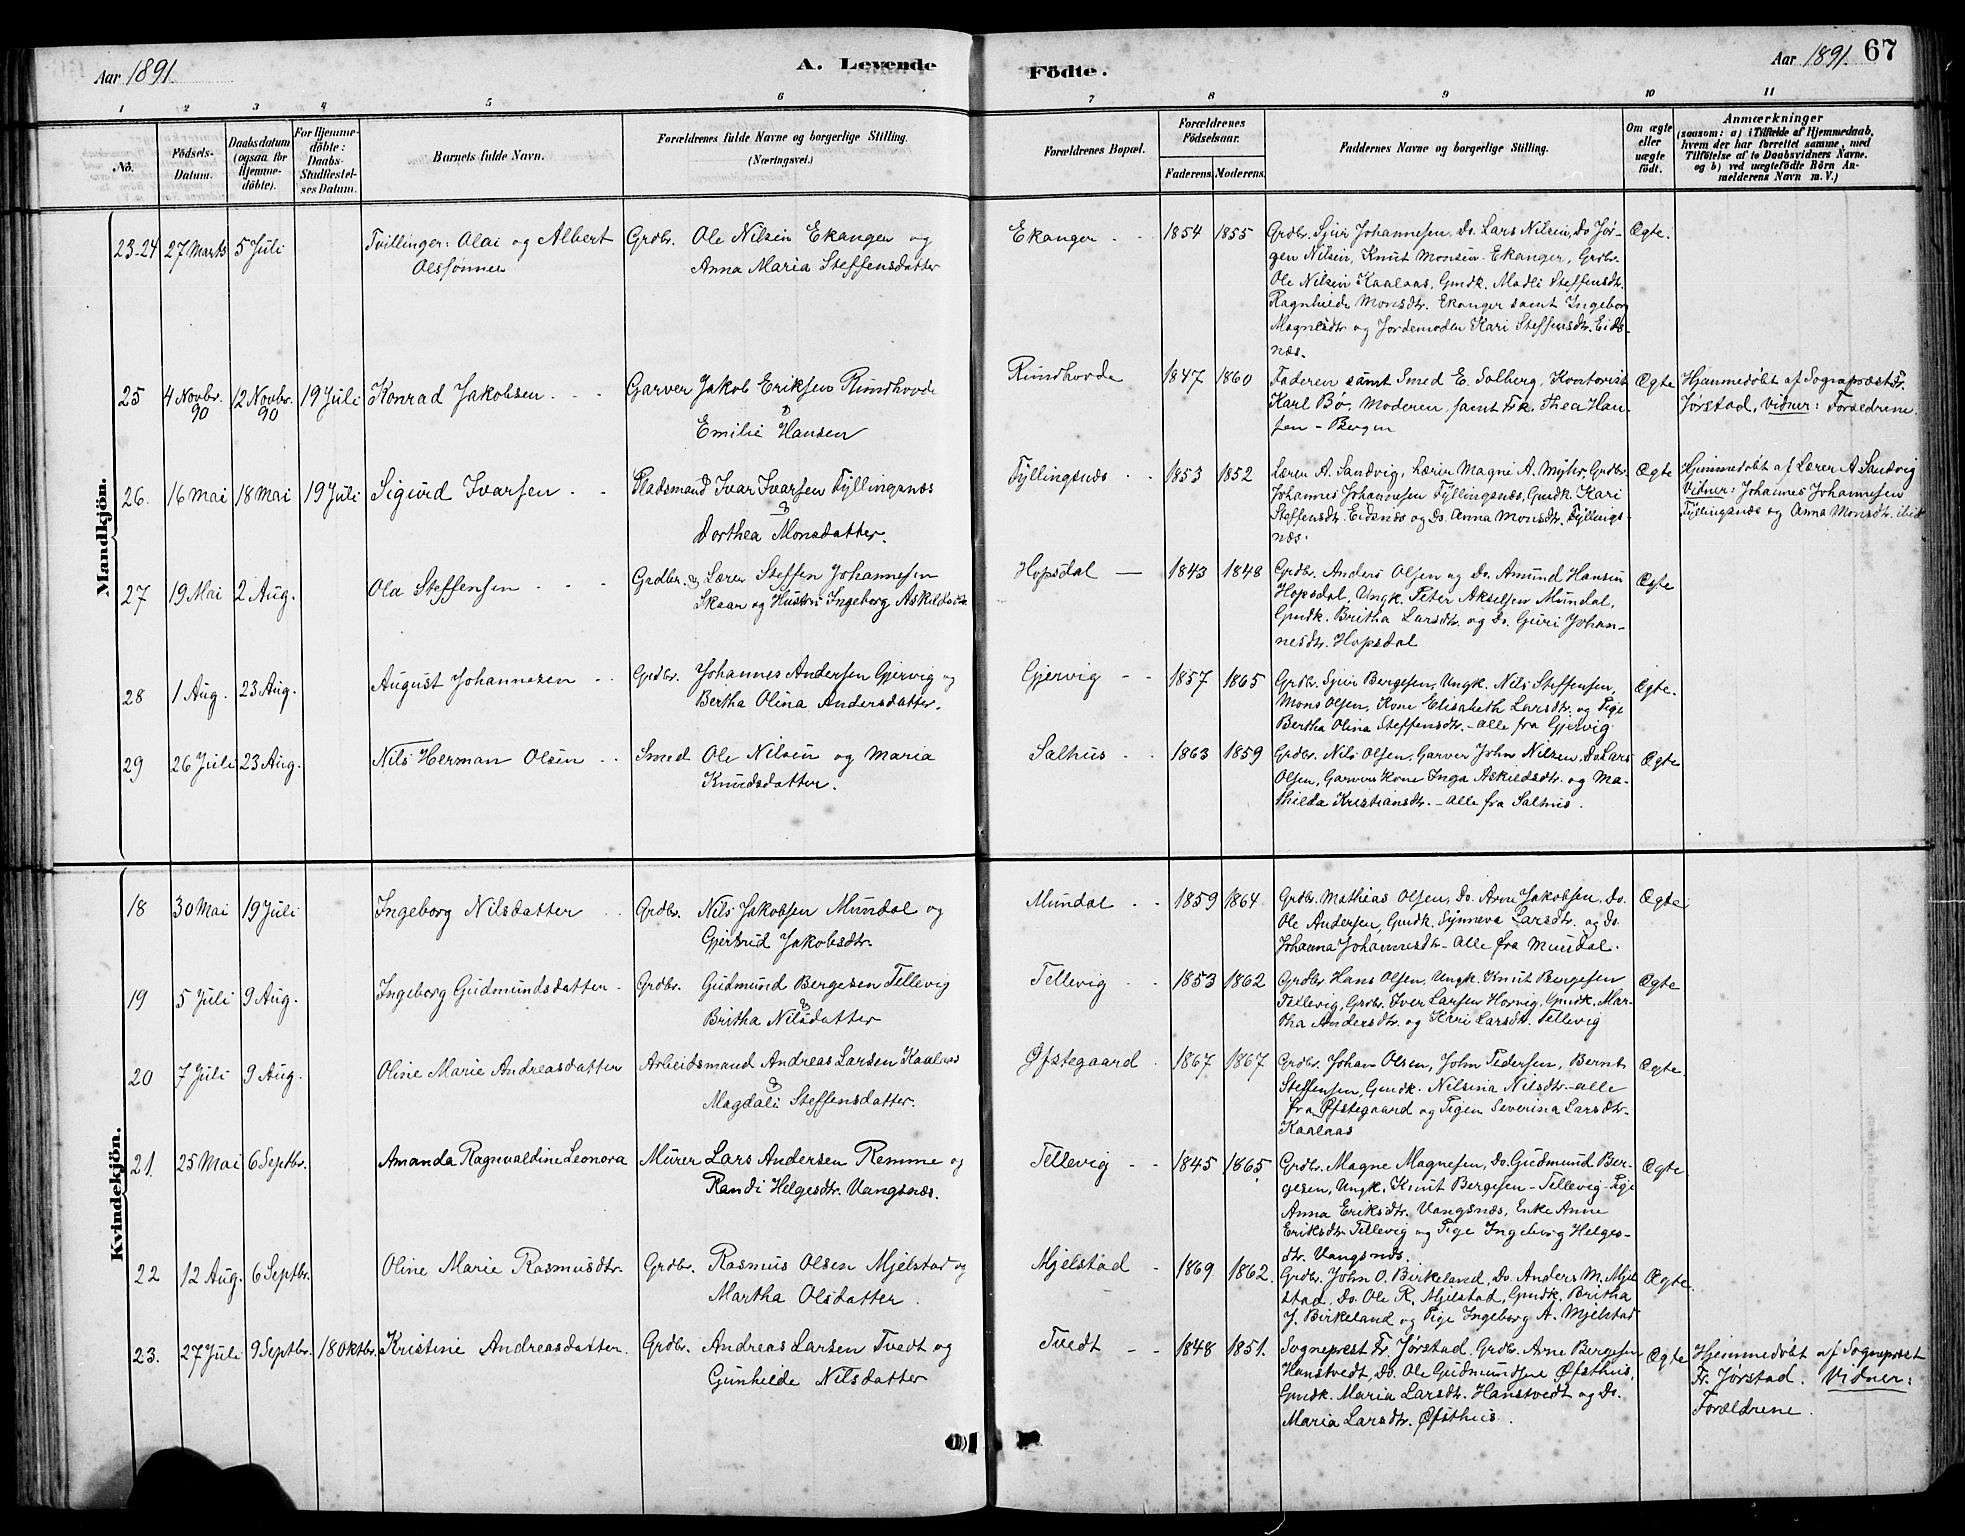 Aar 1891.
A. Levende
Födte.
Aar 1891.
67
1 2 3 4 5 6 7 8 9 10 11
No.
Födsels-
Datum.
Daabsdatum
(ogsaa for
Hjemme-
döbte).
For Hjemme-
döbte:
Daabs-
Stadfæstel-
ses Datum.
Barnets fulde Navn.
Forældrenes fulde Navne og borgerlige Stilling.
(Næringsvei.)
Forældrenes Bopæl.
Forældrenes
Födselsaar.
Faderens. Moderens.
Faddernes Navne og borgerlige Stilling.
Om ægte
eller
uægte
födt.
Anmærkninger
(saasom: a) i Tilfælde af Hjemmedaab,
hvem der har forrettet samme, med
Tilföielse af to Daabsvidners Navne.
og b) ved uægtefödte Börn An-
melderens Navn m. V.)
Mandkjön.
23-24 27 Marts 5 Juli Tvillinger: Olai og Albert
Olssønner
Grdbr. Ole Nilsen Ekanger og
Anna Maria Steffensdatter
Ekanger 1854 1855
Grdbr. Sjur Johannesen, Do. Lars Nilsen, Do Jør-
gen Nilsen, Knut Monsen Ekanger, Grdbr.
Ole Nilsen Kaalaas, Gmdk. Madli Steffensdtr.
Ragnhilde Monsdtr. Ekanger samt Ingeborg
Magnesdtr og Jordemoder Kari Steffensdtr. Eids-
næs.
Ægte.
25 4 Novbr. 90 12 Novbr. 90 19 Juli Konrad Jakobsen
Garver Jakob Eriksen Rundhovde
&
Emilie Hansen
Rundhovde 1847 1860
Faderen samt Smed E. Solberg, Kontorist
Karl Bø, Moderen, samt Frk. Thea Han-
sen - Bergen
Ægte
Hjemmedøbt af Sognepræst Fr.
Jørstad, Vidner: Forældrene.
26. 16 Mai 18 Mai 19 Juli Sigurd Ivarsen
Pladsmand Ivar Ivarsen Fyllingsnæs
&
Dorthea Monsdatter.
Fyllingsnæs 1853 1852
Lærer A. Sandvig, Lærer Magne A. Myhr, Grdbr.
Johannes Johannesen Fyllingsnæs, Gmdk. Kari
Steffensdtr. Eidsnæs og Do. Anna Monsdtr. Fyllings-
næs.
Ægte
Hjemmedøbt af Lærer A Sandvig
Vidner: Johannes Johannesen
Fyllingsnæs og Anna Monsdtr. ibid
27 19 Mai 2 Aug. Ola Steffensen
Grdbr. & Lærer Steffen Johannesen
Skaar og Hustru Ingeborg Askildsdtr.
Hopsdal 1843 1848
Grdbr. Anders Olsen og Do. Amund Hansen
Hopsdal, Ungk. Peter Akselsen Mundal,
Gmdk. Britha Larsdtr. og Do. Guri Johan-
nesdtr. Hopsdal
Ægte
28 1 Aug. 23 Aug. August Johannesen
Grdbr. Johannes Andersen Gjervig og
Bertha Olina Andersdatter.
Gjervig 1857 1865
Grdbr. Sjur Bergesen, Ungk. Nils Steffensen,
Mons Olsen, Kone Elisabeth Larsdtr. og Pige
Bertha Olina Steffensdtr. - alle fra Gjervig
Ægte.
29 26 Juli 23 Aug. Nils Herman Olsen
Smed Ole Nilsen og Maria
Knudsdatter.
Salhus 1863 1859
Grdbr. Nils Olsen, Garver John Nilsen, Do Lars
Olsen, Garvers Kone Inga Askildsdtr. og Ma-
thilda Kristiansdtr. - alle fra Salhus.
Ægte
Kvindekjön.
18 30 Mai 19 Juli Ingeborg Nilsdatter
Grdbr. Nils Jakobsen Mundal og
Gjertrud Jakobsdtr.
Mundal 1859 1864
Grdbr. Mathias Olsen, Do. Arne Jakobsen, Do.
Ole Andersen, Gmdk Synneva Larsdtr. og Do.
Johanna Johannesdtr - alle fra Mundal.
Ægte
19 5 Juli 9 Aug. Ingeborg Gudmundsdatter
Grdbr. Gudmund Bergesen Tellevig
&
Britha Nilsdatter
Tellevig 1853 1862
Grdbr Hans Olsen, Ungk. Knut Bergesen
Tellevig, Grdbr. Iver Larsen Horvig, Gmdk. Mar-
tha Andersdtr. og Kari Larsdtr. Tellevig
Ægte
20 7 Juli 9 Aug. Oline Marie Andreasdatter
Arbeidsmand Andreas Larsen Kaalaas
&
Magdali Steffensdatter.
Øfstegaard 1867 1867
Grdbr. Johan Olsen, John Pedersen, Bernt
Steffensen, Gmdk. Nilsina Nilsdtr. - alle
fra Øfstegaard og Pigen Severina Larsdtr.
Kaalaas
Ægte.
21. 25 Mai 6 Septbr. Amanda Ragnvaldine Leonora
Murer Lars Andersen Remme og
Randi Helgesdtr. Vangsnæs.
Tellevig 1845 1865
Grdbr. Magne Magnesen, Do. Gudmund Ber-
gesen, Ungk. Knut Bergesen - Tellevig - Pige
Anna Eriksdtr. Vangsnæs, Enke Anne
Eriksdtr. Tellevig og Pige Ingeborg Helges-
dtr. Vangsnæs.
Ægte
22 12 Aug. 6 Septbr. Oline Marie Rasmusdtr.
Grdbr. Rasmus Olsen Mjelstad og
Martha Olsdatter.
Mjelstad 1869 1862.
Grdbr. John O. Birkeland, Do. Anders M. Mjel
stad, Do. Ole R. Mjelstad, Gmdk. Britha
J. Birkeland og Pige Ingeborg A. Mjelstad
Ægte.
23. 27 Juli 9 Septbr. 18 Oktbr. Kristine Andreasdatter.
Grdbr. Andreas Larsen Tvedt og
Gunhilde Nilsdatter
Tvedt 1848 1851.
Sogneprest Fr. Jørstad, Grdbr. Arne Bergesen
Hanstvedt, Do. Ole Gudmundsene Øfsthus,
Gmdk. Maria Larsdtr. Hanstvedt og Do.
Maria Larsdtr. Øfsthus.
Ægte
Hjemmedøbt af Sogneprest
Fr. Jørstad. Vidner:
Forældrene.